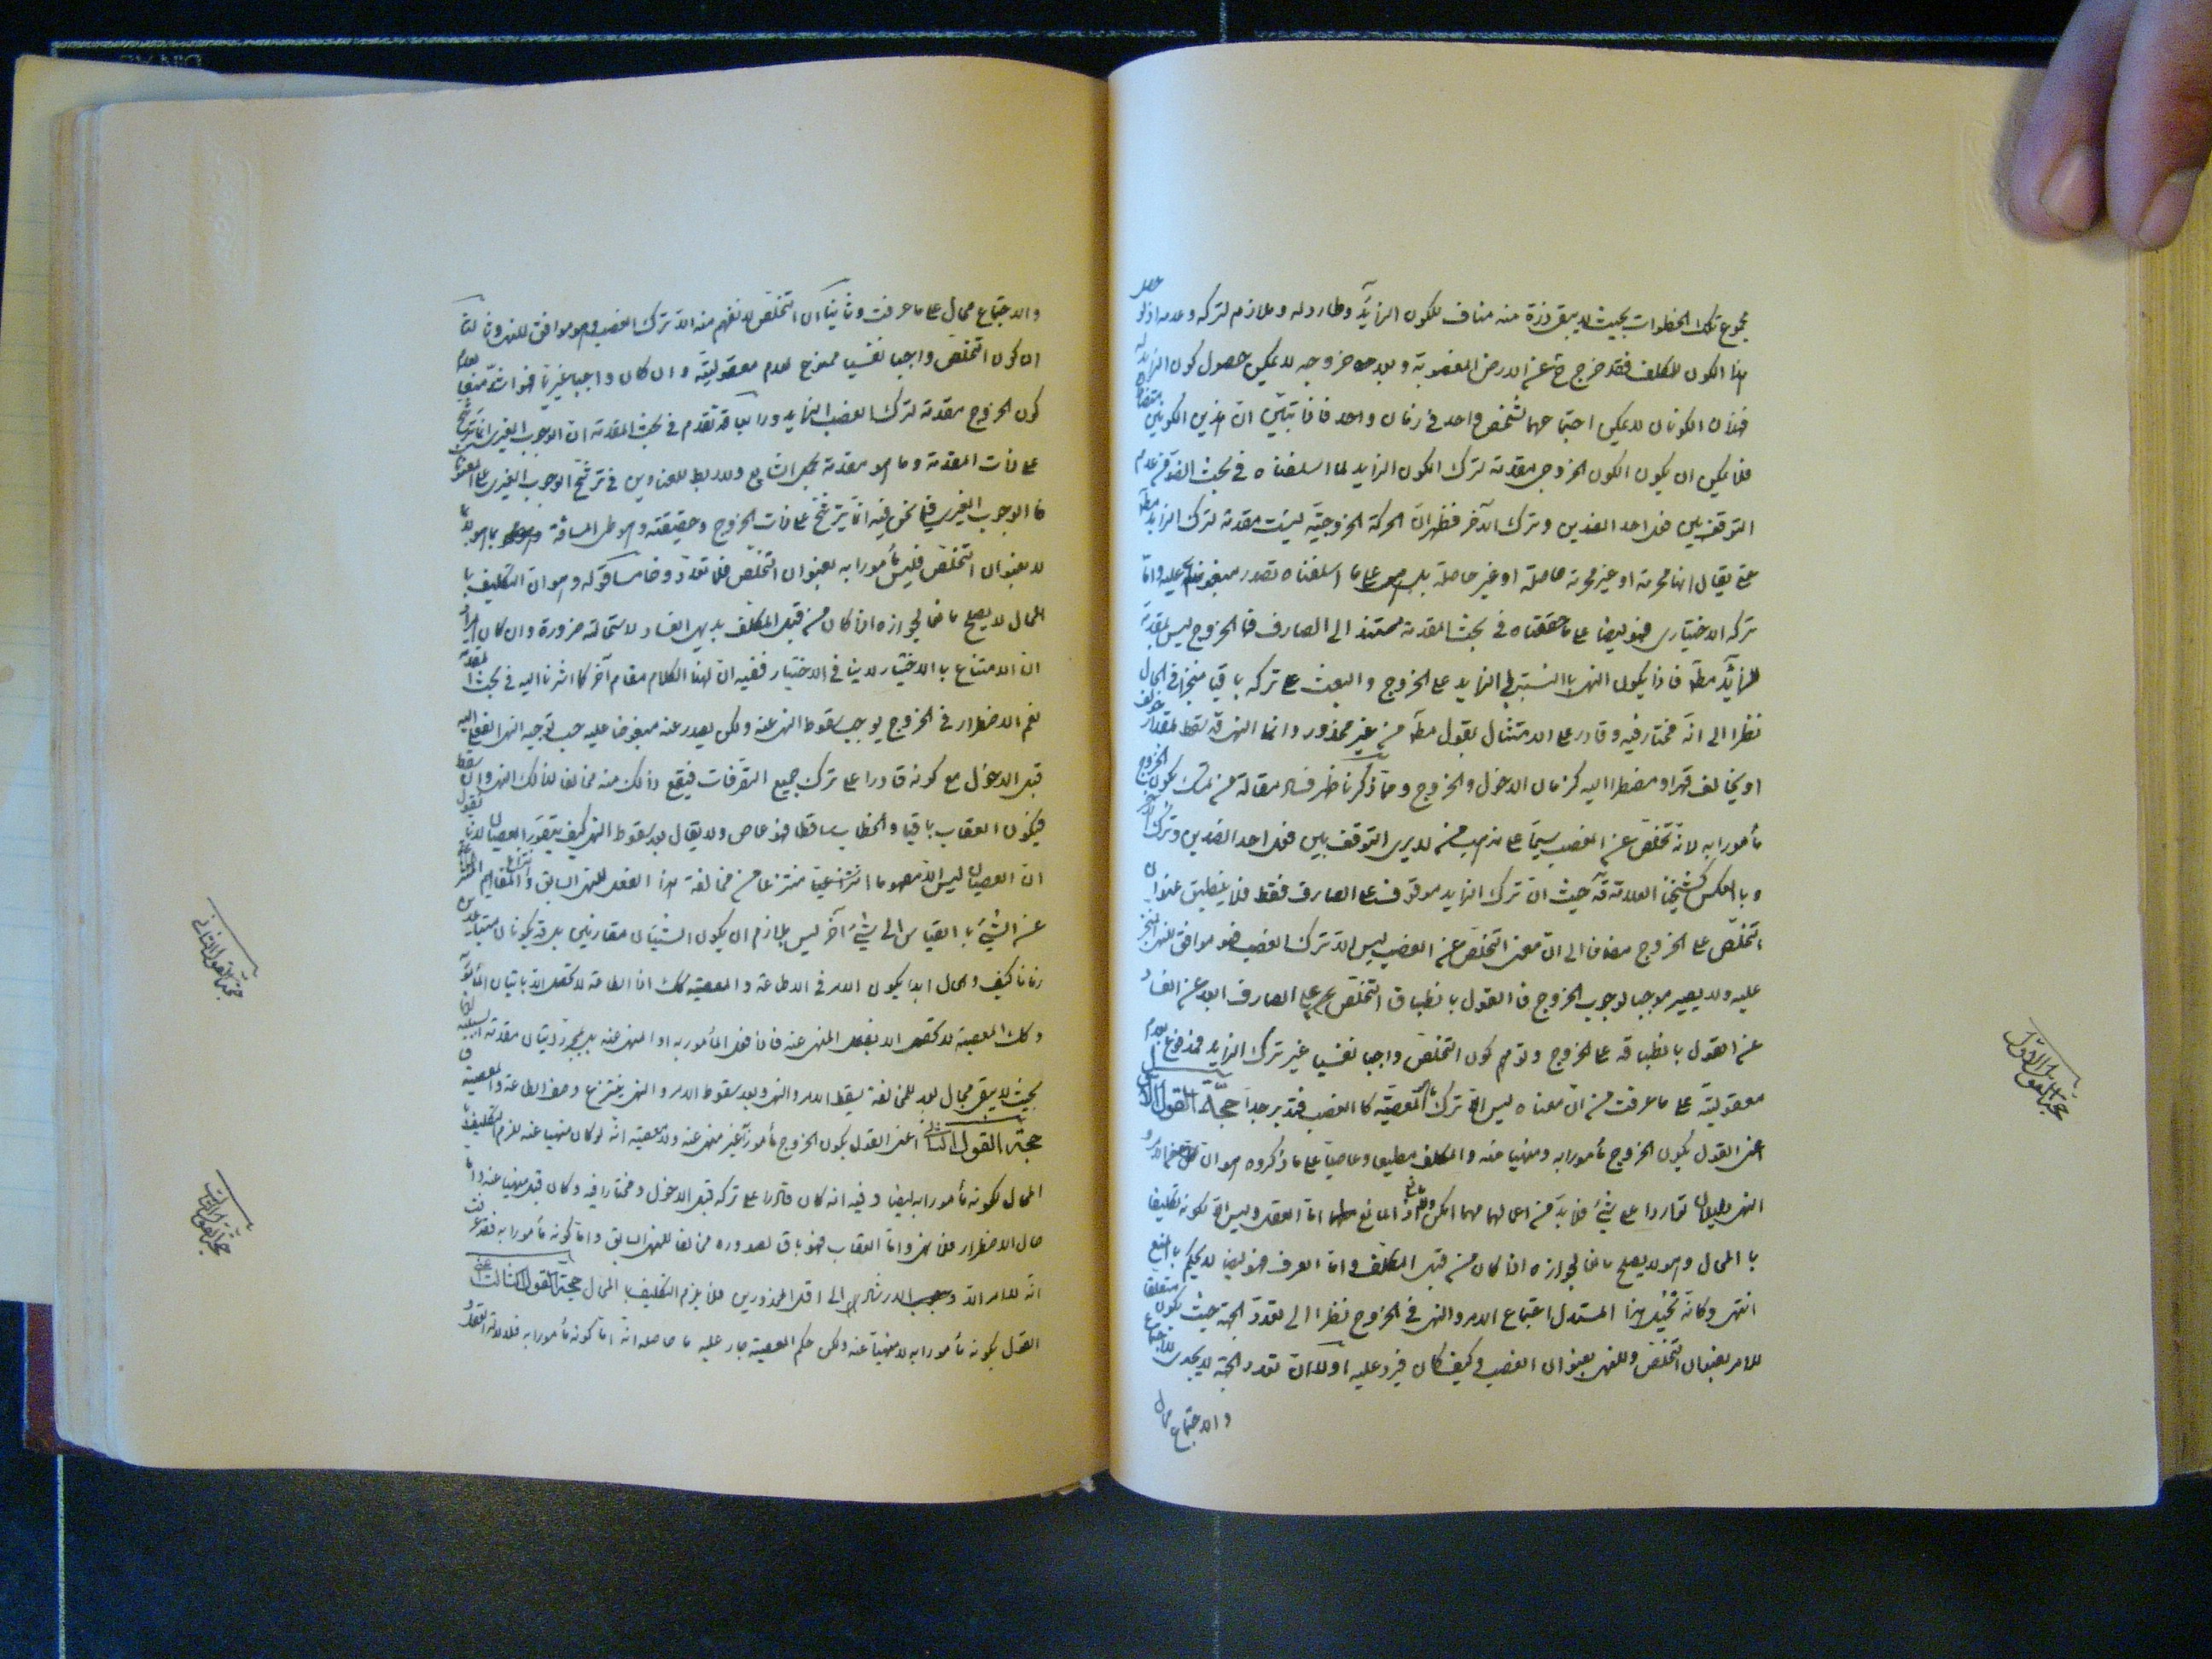 مجموع تلك الخطوات بحيث لا يبقى ذرة منه مناف للكون الزايد وطارد له وملازم لتركه وعدمه اذ لو حصل
هذا الكون للمكلف فقد خرج عن الارض المغصوبة وبعد خروجه لا يمكن حصول كون الزايد له
فهذان الكونان لا يمكن اجتماعهما لشخص واحد في زمان واحد فاذا تبين ان هذين الكونين
فلا يمكن ان يكون الكون الخروجى مقدمة لترك الكون الزايد لما اسلفناه في بحث الضد من عدم
التوقف بين فعل احد الضدين وترك الآخر فظهر ان الحركة الخروجية ليست مقدمة لترك الزايد مطلقا
حتى يقال انها محرمة او غير محرمة حاصلة او غير حاصلة بل على ما اسلفناه تصدر مبغوضا عليه واما
تركه الاختيارى فهو ايضا على ما حققناه في بحث المقدمة مستند الى الصارف فالخروج ليس بمقدمة
للزايد مطلقا فاذا يكون النهى بالنسبة الى الزايد على الخروج والبعث على تركه باقيا منجزا في الحال
نظرا الى انه مختار فيه وقادر على الامتثال بقول مطلق من غير محذور وانما النهى قد سقط لمقدار
او يخالف قهرا ومضطرا اليه كزمان الدخول والخروج ومما ذكرنا ظهر فساد مقالة من تمسك بكون الخروج
مأمورا به لانه تخلص عن الغصب سيما على مذهب من لا يرى التوقف بين فعل احد الضدين وترك الآخر
وبالعكس كشيخنا العلامة قده حيث ان ترك الزايد موقوف على الصارف فقط فلا ينطبق عنوان
التخلص على الخروج مضافا الى ان معنى التخلص عن الغصب ليس الا ترك الغصب فهو موافق للنهى المنجز
عليه ولا يصير موجبا لوجوب الخروج فالقول بانطباق التخلص على الصارف ابعد عن الفساد
عن القول بانطباقه على الخروج وتوهم كون التخلص واجبا نفسيا غير ترك الزايد فمدفوع بعدم
معقوليته على ما عرفت من ان معناه ليس الا ترك المعصية كالغصب فتدبر جدا حجة القول الاول
اعنى القول بكون الخروج مأمورا به ومنهيا عنه والمكلف مطيعا وعاصيا على ما ذكروه هو ان الامر و
النهى دليلان تواردا على شئ فلا بد من اعمالهما مهما امكن ولا مانع اذ المانع اما العقل وليس الا لكونه تكليفا
بالمحال وهو لا يصلح مانعا لجوازه اذا كان من قبل المكلف واما العرف فهو ايضا لا يحكم بالمنع
انتهى وكانه تخيل هذا المستدل اجتماع الامر والنهى في الخروج نظرا الى تعدد الجهة حيث يكون متعلقا
للامر بعنوان التخلص وللنهى بعنوان الغصب وكيف كان فيرد عليه اولا ان تعدد الجهة لا يجدى للاجتماع
والاجتماع محال
حجة القول الاول
والاجتماع محال على ما عرفت وثانيا ان التخلص لا نفهم منه الا ترك الغصب فهو موافق للنهى وثالثا
ان كون التخلص واجبا نفسيا ممنوع لعدم معقوليته وان كان واجبا غيريا فهو ايضا منفى بعدم
كون الخروج مقدمة لترك الغصب الزايد ورابعا قد تقدم في بحث المقدمة ان الوجوب الغيرى انما يترشح
على ذات المقدمة وما هو مقدمة بحمل الشايع ولا ربط للعناوين في ترشح الوجوب الغيرى على المعنون
فالوجوب الغيرى فيما نحن فيه انما يترشح على ذات الخروج وحقيقته وهو طى المسافة بما هو
لا بعنوان التخلص فليس مأمورا به بعنوان التخلص فلا تعدد وخامسا قوله وهو ان التكليف با
لمحال لا يصلح مانعا لجوازه اذا كان من قبل المكلف بديهى الفساد لاستحالته ضرورة وان كان المراد
ان الامتناع بالاختيار لا ينافى الاختيار ففيه ان لهذا الكلام مقام آخر كما اشرنا اليه في بحث المقدمة
نعم الاضطرار في الخروج يوجب سقوط النهى عنه ولكن يصدر عنه مبغوضا عليه حسب توجيه النهى الفعلى اليه
قبل الدخول مع كونه قادرا على ترك جميع التصرفات فيقع ذلك منه مخالفا لذلك النهى وان سقط
فيكون العقاب باقيا والخطاب ساقطا فهو عاص ولا يقال بعد سقوط النهى كيف يتصور العصيان لانا نقول
ان العصيان ليس الا مفهوما انتزاعيا منتزعا من مخالفة هذا الفعل للنهى السابق وانتزاع المفاهيم
عن الشئ بالقياس الى شئ آخر ليس بلازم ان يكون الشيئان مقارنين بل قد يكونان متباعدين
زمانا كيف والحال ابدا يكون الامر في الاطاعة والمعصية كك اذ الطاعة لا تحصل الا باتيان المأمور به
وكك المعصية لا تحصل الا بفعل المنهى عنه فاذا فعل المأمور به او المنهى عنه بل بمجرد اتيان مقدمته السببية
بحيث لا يبقى مجال بعد للمخالفة يسقط الامر والنهى وبعد سقوط الامر والنهى ينتزع وصف الطاعة والمعصية
حجة القول الثانى اعنى القول بكون الخروج مأمورا غير منهى عنه ولا معصية انه لو كان منهيا عنه للزم التكليف با
لمحال لكونه مأمورا به ايضا وفيه انه كان قادرا على تركه قبل الدخول ومختارا فيه وكان قبل منهيا عنه واما
حال الاضطرار فلا نهى واما العقاب فهو باق لصدوره مخالفا للنهى السابق واما كونه مأمورا به فقد عرفت
انه لا امر الا الارشادى الى اقل المحذورين فلا يلزم التكليف بالمحال حجة القول الثالث اعنى
القول بكونه مأمورا به لا منهيا عنه ولكن حكم المعصية جار عليه ما حاصله انه اما كونه مأمورا به فلدلالة العقل
حجة القول الثانى
حجة القول الثالث